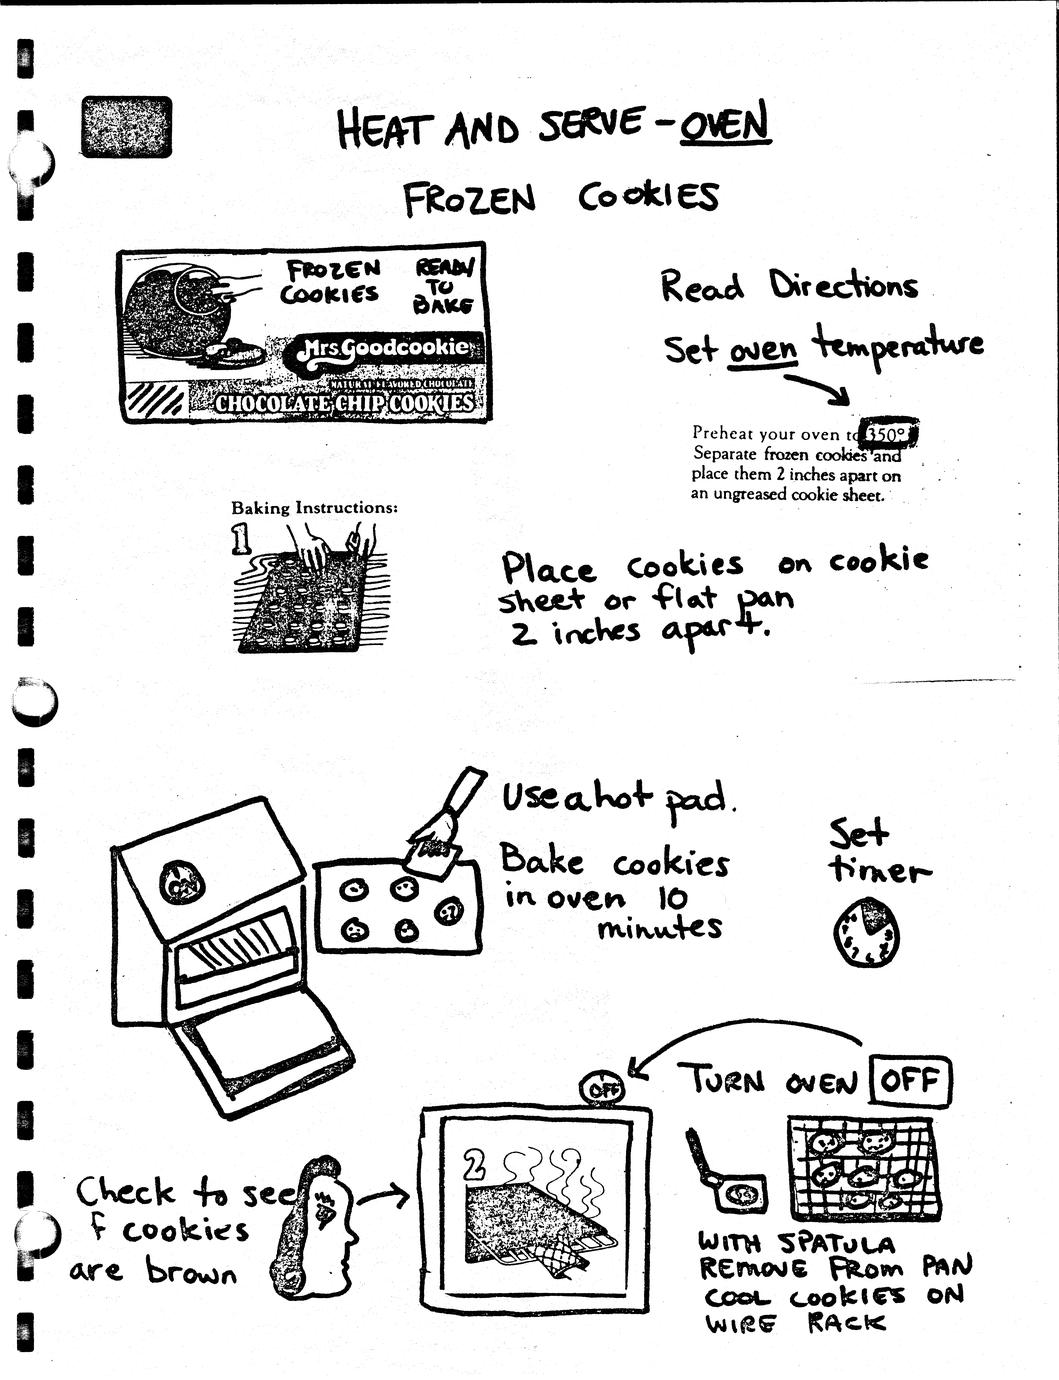 HEAT AND SERVE - OVEN
FROZEN COOKIES
FROZEN COOKIES
READY TO BAKE
Mrs. Goodcookie
NATURAL FLAVORED CHOCOLATE
CHOCOLATE CHIP COOKIES
Read Directions
Set oven temperature
Preheat your oven to 350°.
Separate frozen cookies and
place them 2 inches apart on
an ungreased cookie sheet.
Baking Instructions:
1
Place cookies on cookie
sheet or flat pan
2 inches apart.
Use a hot pad.
ON
Bake cookies
in oven 10
minutes
Set
timer
TURN OVEN OFF
OFF
2
Check to see
f cookies
are brown
WITH SPATULA
REMOVE FROM PAN
COOL COOKIES ON
WIRE RACK